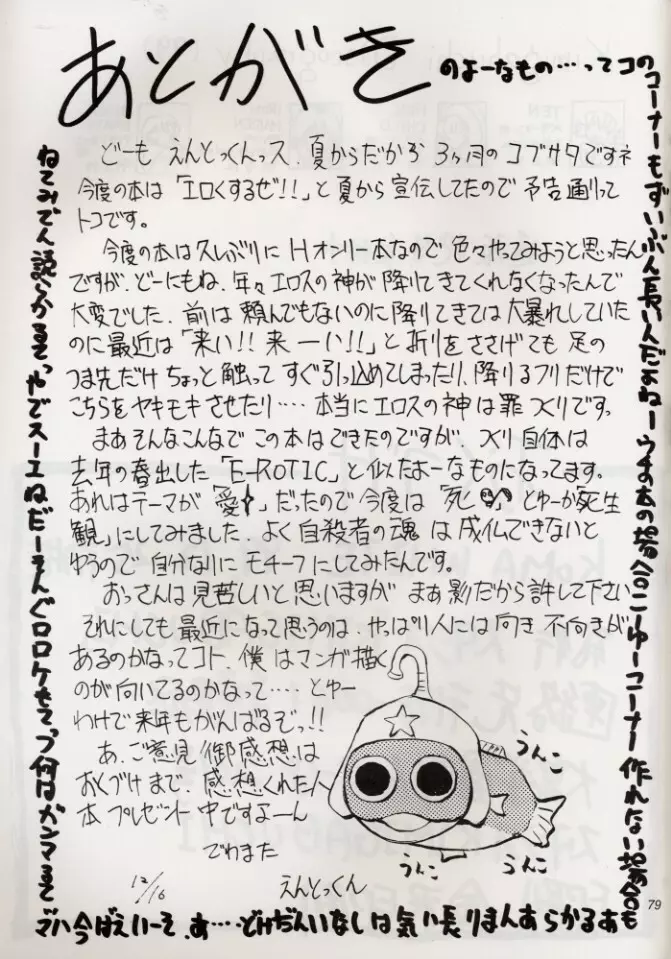 あとがき
のよーなもの…ってコの
コーナーもずいぶん長いんだよねーウチの本の場合こーゆーコーナー作れない場合も
あるからあんまり長い気はしないんだけど…あ、そーいえば今ハマ
ってるマンガは何つってもケロロぐんそーだねエースでやってるぞ 読んでみてね
どーも えんとっくんっス、夏からだから 3ヶ月のゴブサタですネ
今度の本は「エロくするぜ!!」と夏から宣伝してたので 予告通りって
トコです。
今度の本は久しぶりに Hオンリー本なので 色々やってみようと思ったん
ですが、どーにもね、年々エロスの神が降りてきてくれなくなったんで
大変でした、前は頼んでもないのに降りてきては大暴れしていた
のに最近は「来い!! 来ーい!!」と祈りをささげても 足の
つま先だけちょっと触ってすぐ引っ込めてしまったり、降りるフリだけで
こちらをヤキモキさせたり‥‥本当にエロスの神は罪つくりです。
まあそんなこんなで この本はできたのですが、つくり自体は
去年の春出した「E-ROTIC」と似たよーなものになってます。
あれはテーマが「愛」だったので今度は「死」とゆーか「死生
観」にしてみました、よく自殺者の魂は成仏できないと
ゆうので自分なりにモチーフにしてみたんです。
おっさんは見苦しいと思いますが まあ影だから許して下さい
それにしても最近になって思うのは、やっぱり人には向き不向きが
あるのかなってコト、僕はマンガ描く
のが向いてるのかなって‥‥とゆー
わけで来年もがんばるぞっ!!
あ、ご意見/御感想は
おくづけまで、感想くれた人
本プレゼント中ですよーん
でわまた
12/16 えんとっくん
うんこ
うんこ
うんこ
79